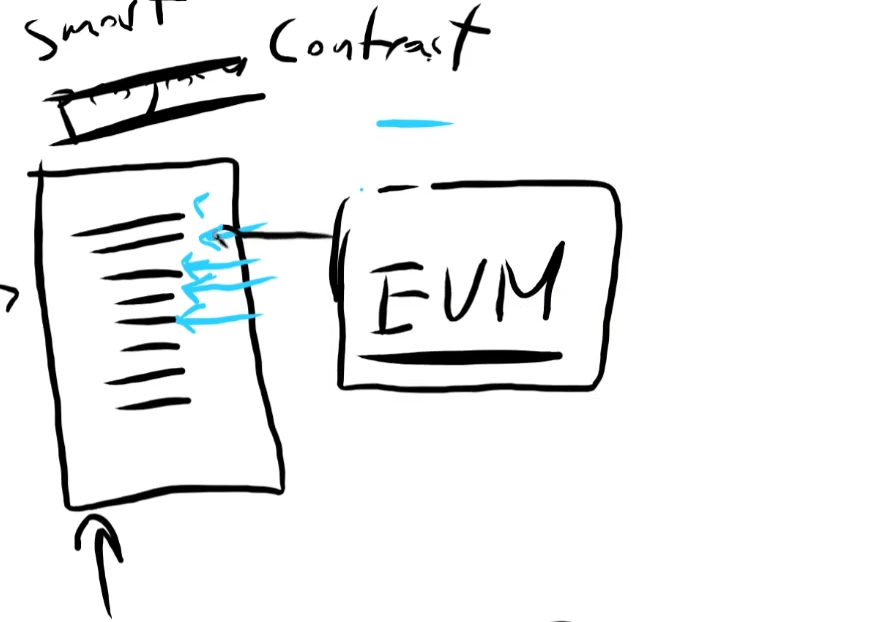 Smart Contract
EVM